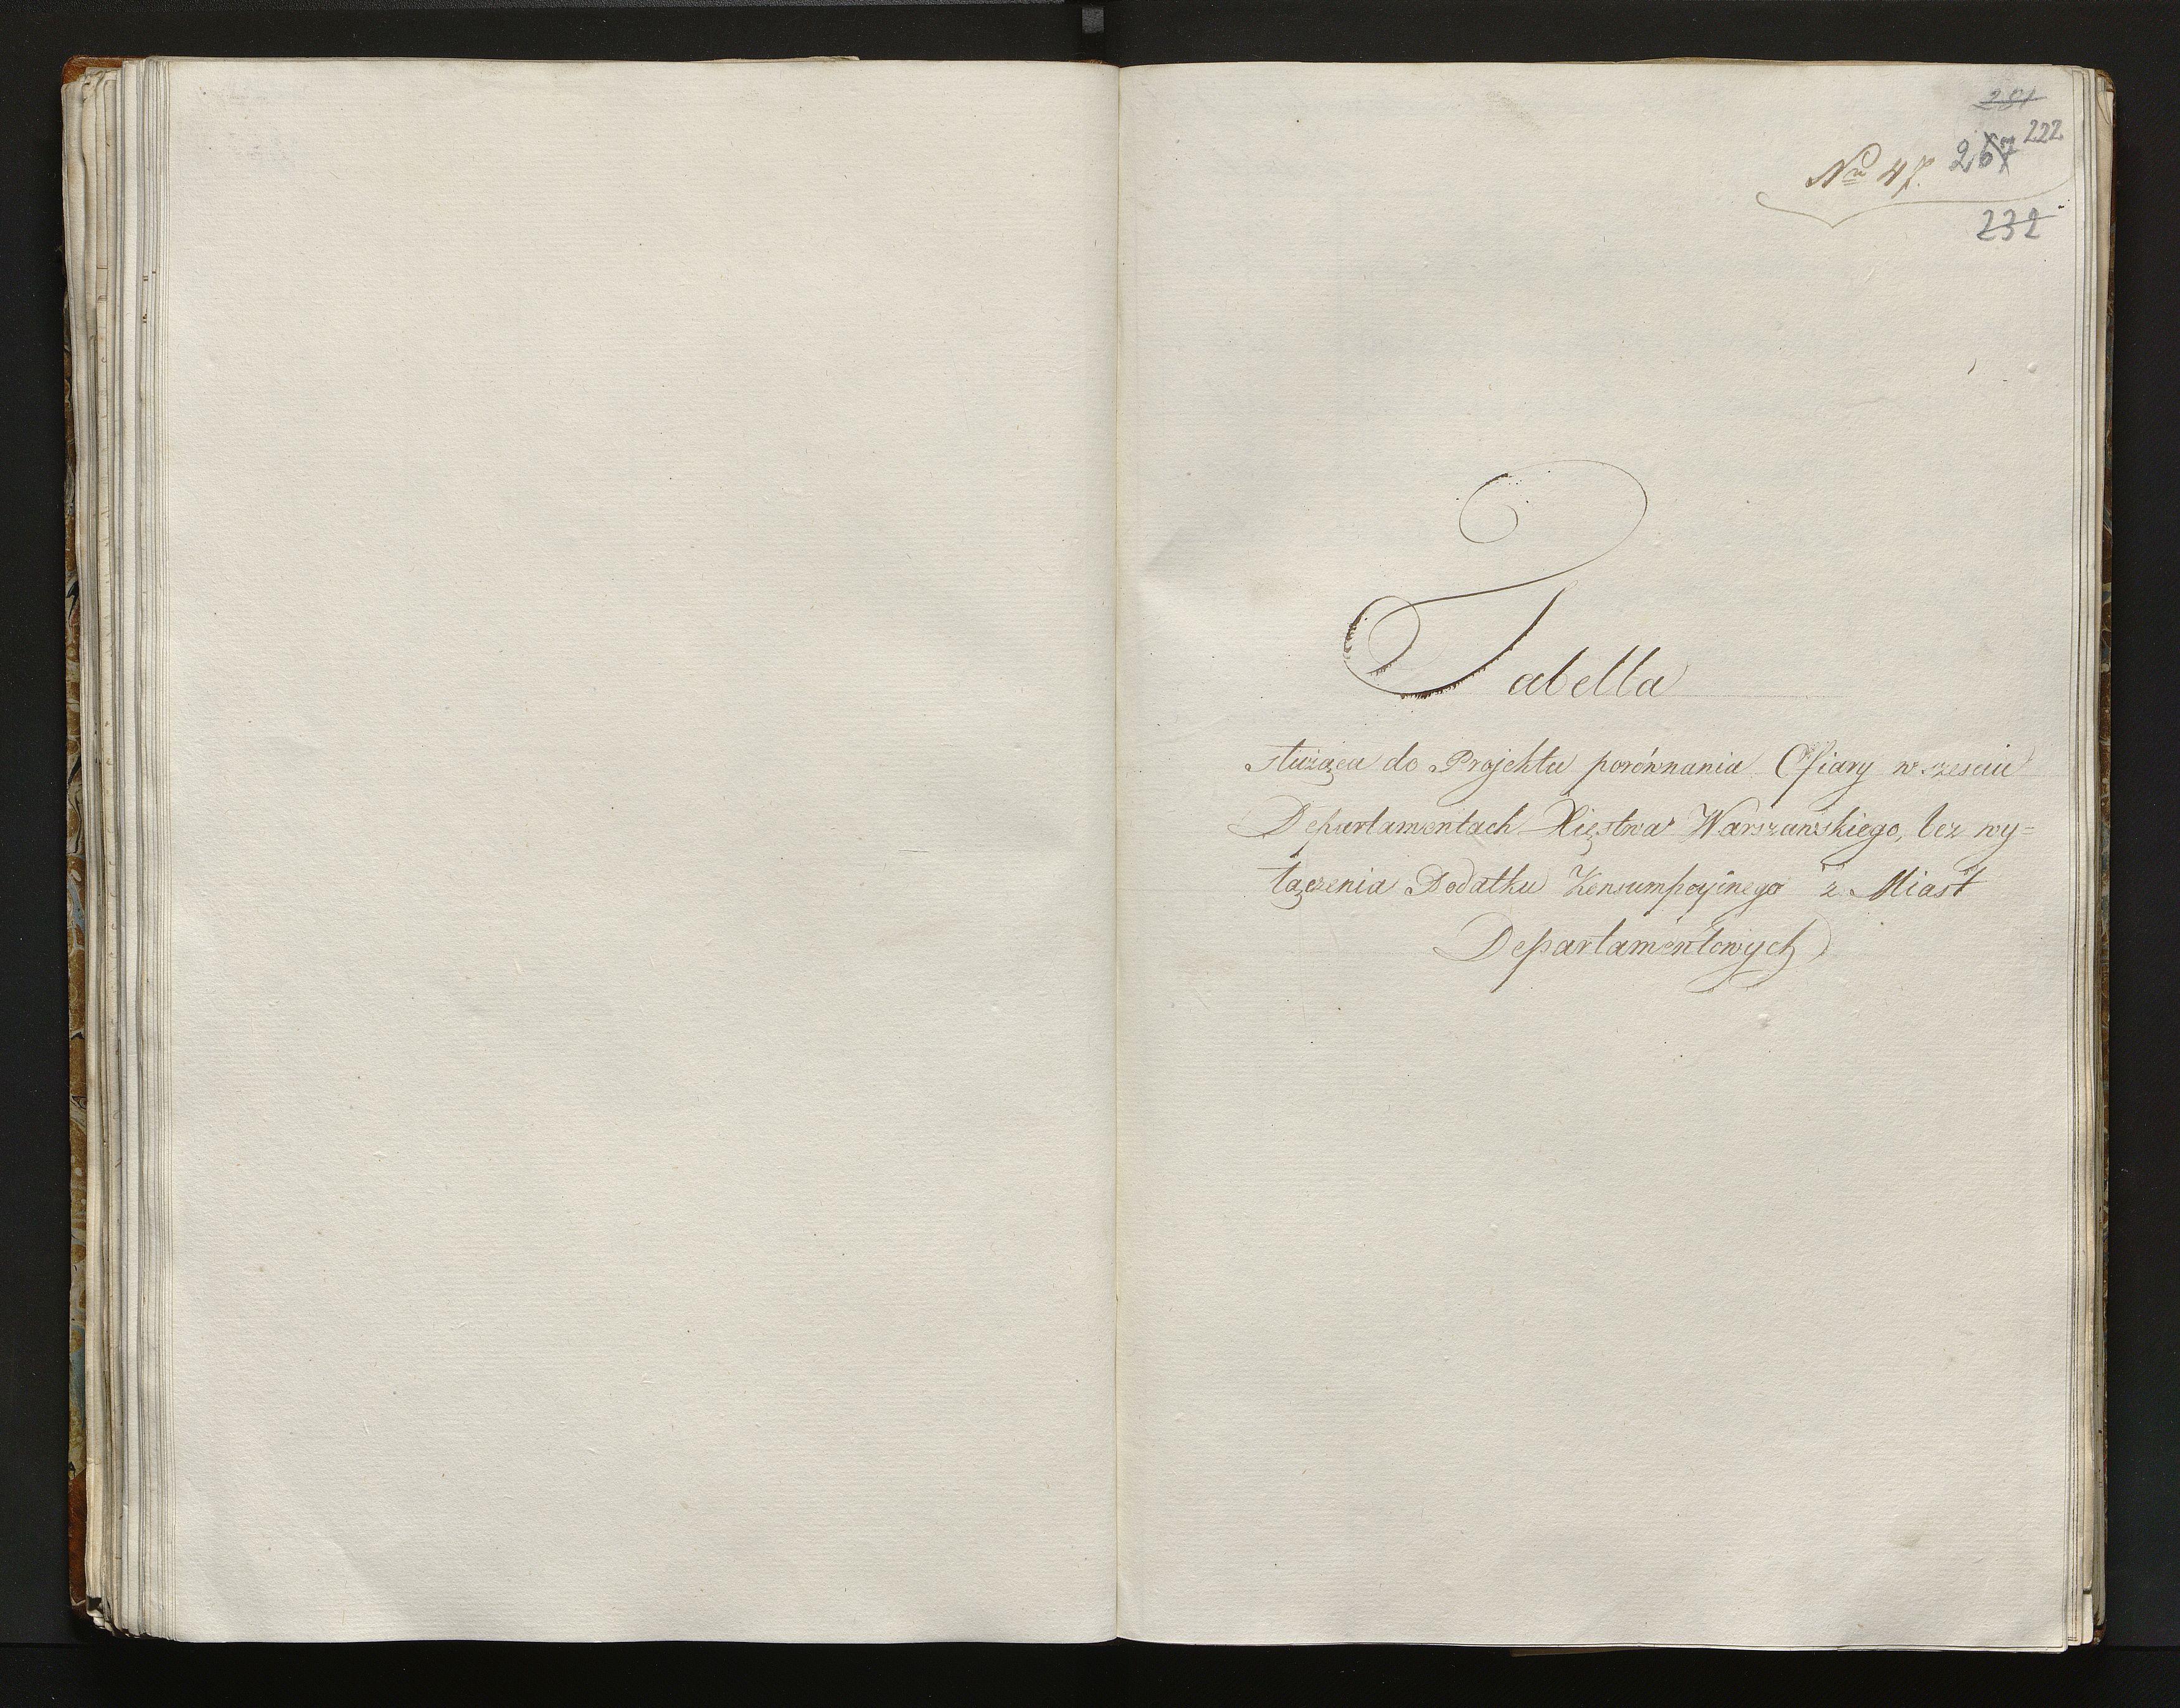 281
222
267
Nro 47.
232
Tabella
służąca do Projektu porównania Ofiary w sześciu
Departamentach Xięstwa Warszawskiego, bez wy=
łączenia Dodatku Konsumpcyinego z Miast
Departamentowych